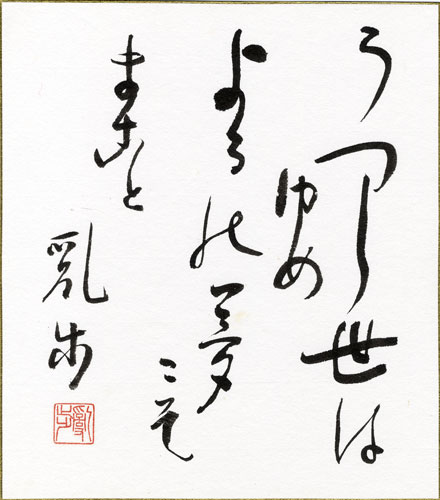 うつし世は
ゆめ
よるの夢こそ
まこと
亂歩
亂歩